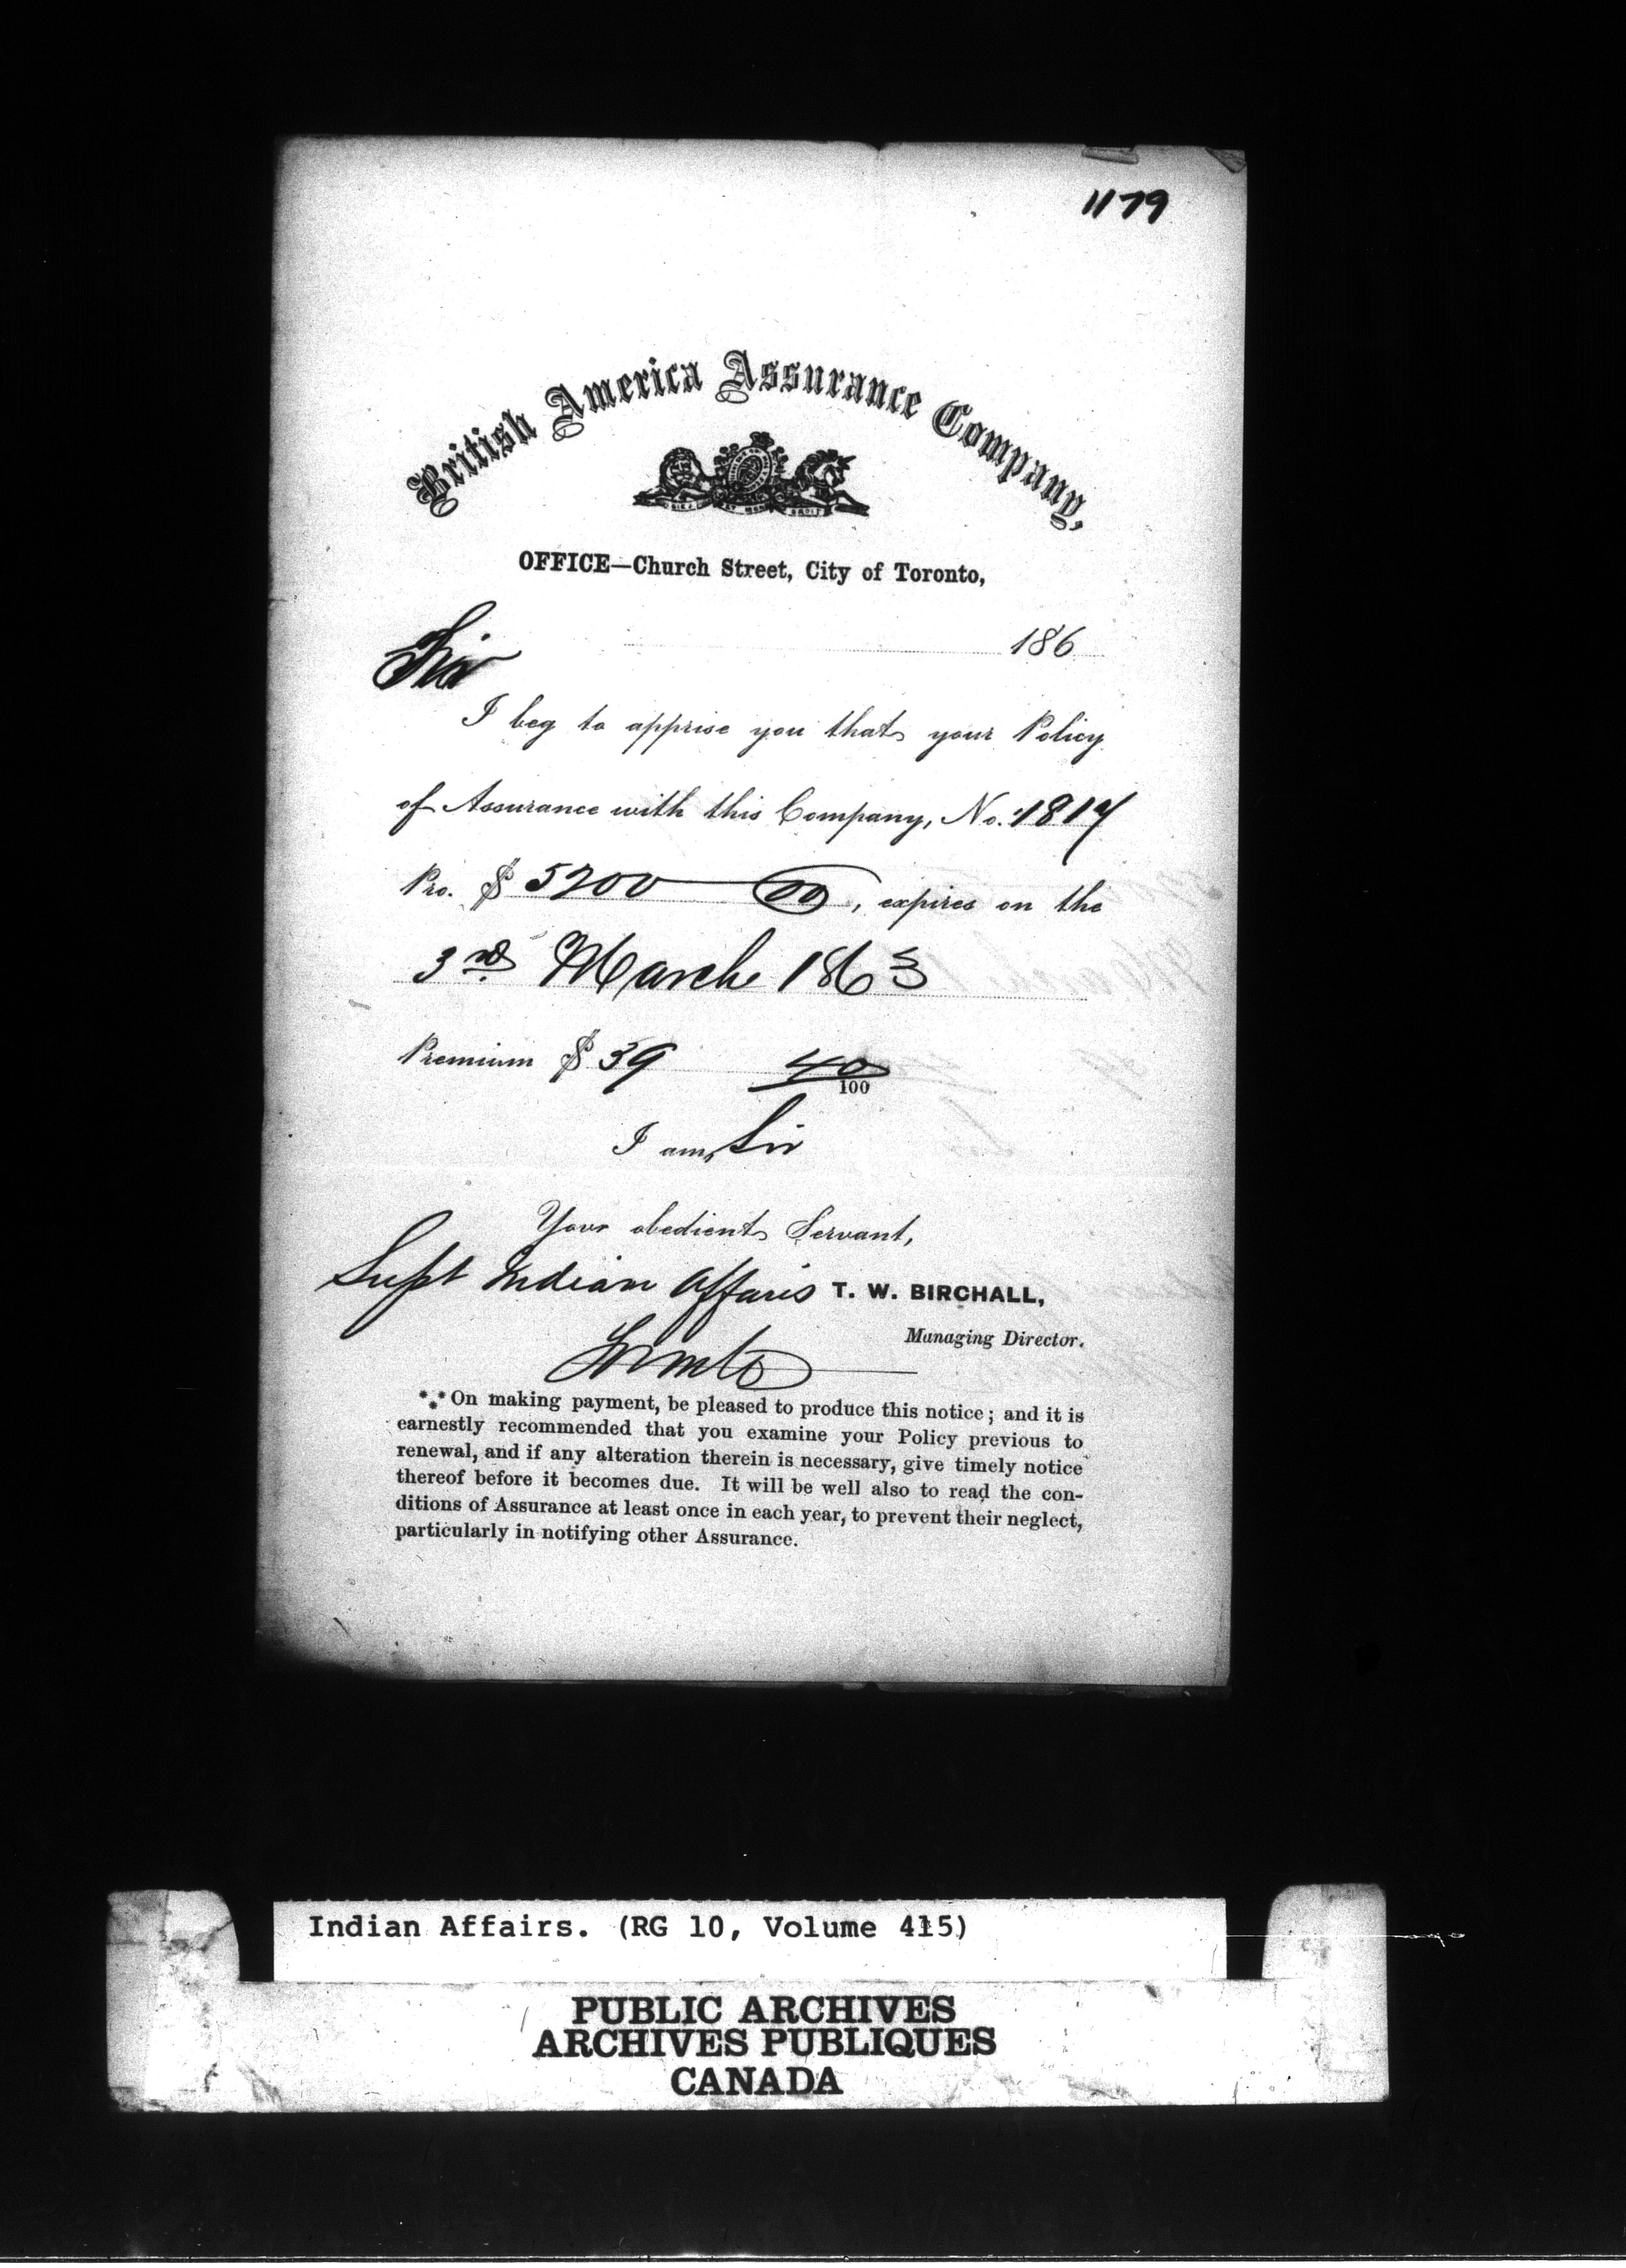 1179
British America Assurance Company,
DIEU ET MON DROIT
OFFICE—Church Street, City of Toronto,
186
Sir
I beg to apprise you that your Policy
of Assurance with this Company, No. 1817
Pro. $ 5200 00, expires on the
3rd March 1863
Premium $ 39 40/100
I am, Sir
Your obedient Servant,
Supt Indian Affairs T. W. BIRCHALL,
Managing Director.
Toronto
*** On making payment, be pleased to produce this notice; and it is
earnestly recommended that you examine your Policy previous to
renewal, and if any alteration therein is necessary, give timely notice
thereof before it becomes due. It will be well also to read the con-
ditions of Assurance at least once in each year, to prevent their neglect,
particularly in notifying other Assurance.
Indian Affairs. (RG 10, Volume 415)
PUBLIC ARCHIVES
ARCHIVES PUBLIQUES
CANADA